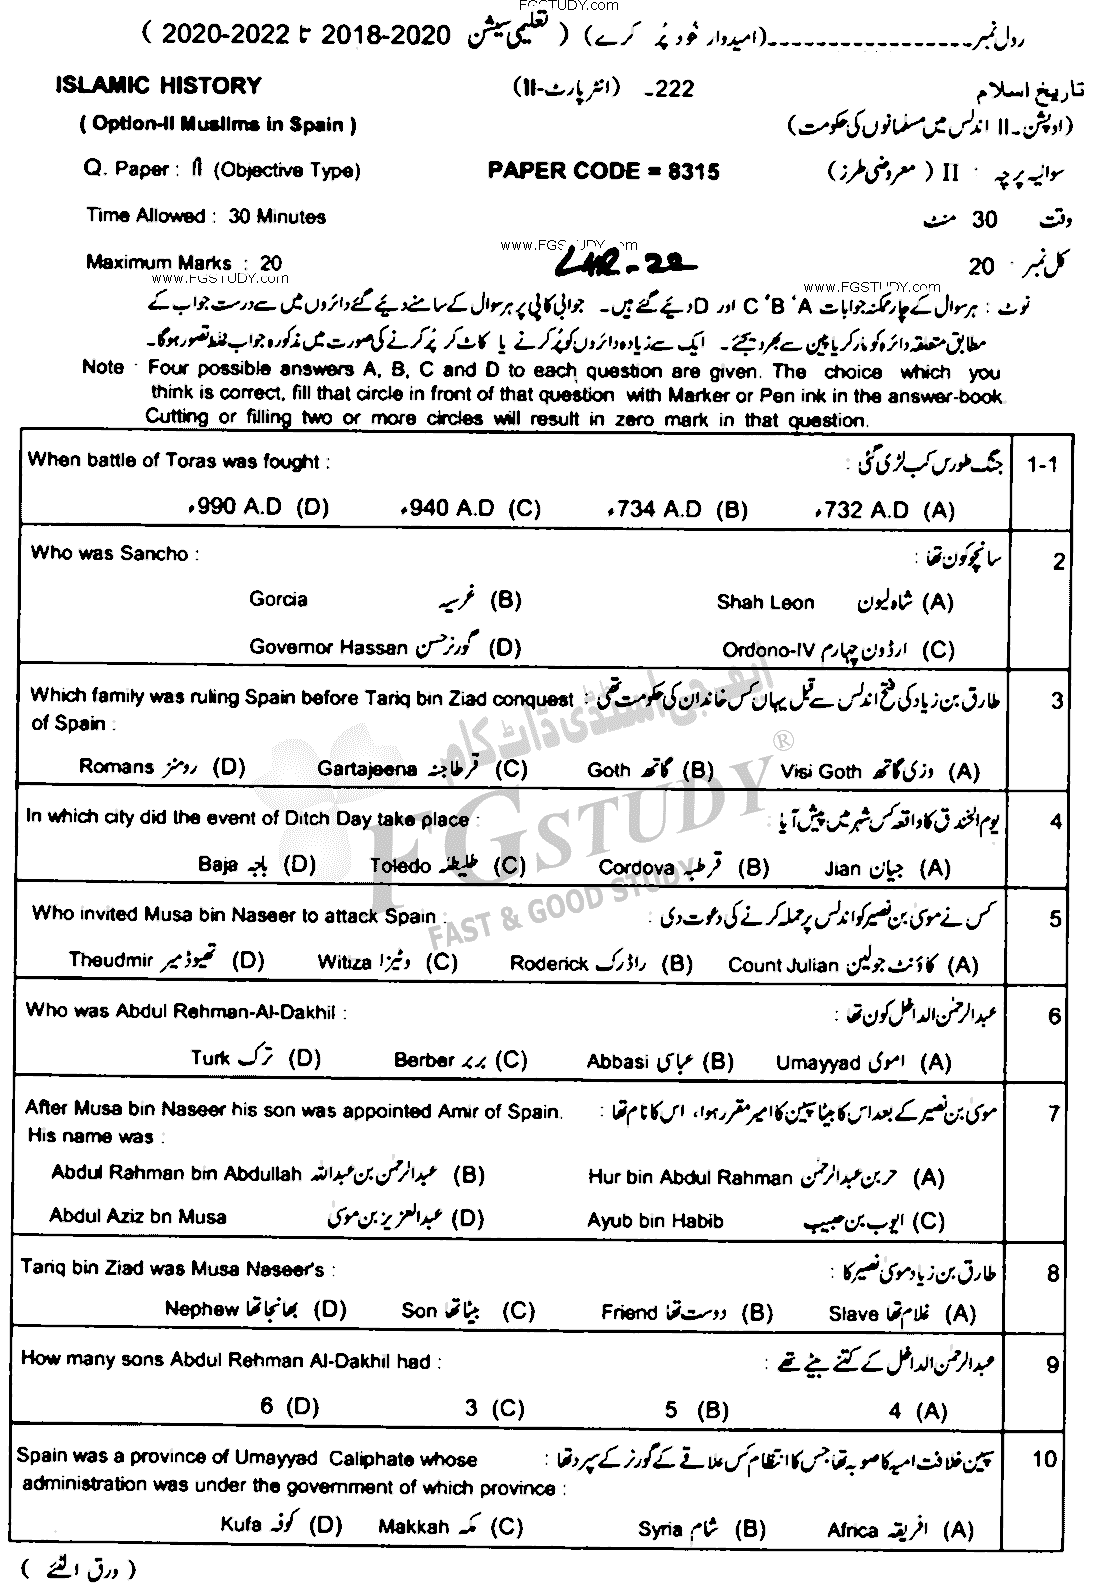 www.FGSTUDY.com
رولنمبر۔۔۔۔۔۔۔۔۔۔۔۔۔۔۔۔۔۔۔۔(امیدوار خود پُر کرے) ( تعلیمی سیشن 2020-2018 تا 2022-2020 )
ISLAMIC HISTORY 222- (انٹر پارٹ-II) تاریخ اسلام
( Option-II Muslims in Spain ) (اوپشن-II اندلس میں مسلمانوں کی حکومت)
Q. Paper : II (Objective Type) PAPER CODE = 8315 سوالیہ پرچہ : II ( معروضی طرز )
Time Allowed : 30 Minutes وقت 30 منٹ
www.FGSTUDY.com
Maximum Marks : 20 LHR-22 کل نمبر : 20
www.FGSTUDY.com www.FGSTUDY.com
نوٹ : ہر سوال کے چار ممکنہ جوابات A ' B ' C اور D دیے گئے ہیں۔ جوابی کاپی پر ہر سوال کے سامنے دیے گئے دائروں میں سے درست جواب کے
مطابق متعلقہ دائرہ کو مارکر یا پین سے بھر دیجئے۔ ایک سے زیادہ دائروں کو پُر کرنے یا کاٹ کر پُر کرنے کی صورت میں مذکورہ جواب غلط تصور ہوگا۔
Note : Four possible answers A, B, C and D to each question are given. The choice which you
think is correct, fill that circle in front of that question with Marker or Pen ink in the answer-book.
Cutting or filling two or more circles will result in zero mark in that question.
When battle of Toras was fought : جنگ طورس کب لڑی گئی : 1-1
990 A.D (D) 940 A.D (C) 734 A.D (B) 732 A.D (A)
Who was Sancho : سانچو کون تھا : 2
Gorcia غرسیہ (B) Shah Leon شاہ لیون (A)
Governor Hassan گورنر حسن (D) Ordono-IV ارڈون چہارم (C)
Which family was ruling Spain before Tariq bin Ziad conquest طارق بن زیاد کی فتح اندلس سے قبل یہاں کس خاندان کی حکومت تھی : 3
of Spain :
Romans رومنز (D) Gartajeena قرطاجنہ (C) Goth گاتھ (B) Visi Goth وزی گاتھ (A)
In which city did the event of Ditch Day take place : یوم الخندق کا واقعہ کس شہر میں پیش آیا : 4
Baja باجہ (D) Toledo طلیطلہ (C) Cordova قرطبہ (B) Jian جیان (A)
Who invited Musa bin Naseer to attack Spain : کس نے موسیٰ بن نصیر کو اندلس پر حملہ کرنے کی دعوت دی : 5
Theudmir تھیوڈمیر (D) Witiza وٹیزا (C) Roderick راڈرک (B) Count Julian کاؤنٹ جولین (A)
Who was Abdul Rehman-Al-Dakhil : عبدالرحمٰن الداخل کون تھا : 6
Turk ترک (D) Berber بربر (C) Abbasi عباسی (B) Umayyad اموی (A)
After Musa bin Naseer his son was appointed Amir of Spain. موسیٰ بن نصیر کے بعد اس کا بیٹا سپین کا امیر مقرر ہوا، اس کا نام تھا : 7
His name was :
Abdul Rahman bin Abdullah عبدالرحمٰن بن عبداللہ (B) Hur bin Abdul Rahman حر بن عبدالرحمٰن (A)
Abdul Aziz bn Musa عبدالعزیز بن موسیٰ (D) Ayub bin Habib ایوب بن حبیب (C)
Tariq bin Ziad was Musa Naseer's : طارق بن زیاد موسیٰ نصیر کا : 8
Nephew بھانجا تھا (D) Son بیٹا تھا (C) Friend دوست تھا (B) Slave غلام تھا (A)
How many sons Abdul Rehman Al-Dakhil had : عبدالرحمٰن الداخل کے کتنے بیٹے تھے : 9
6 (D) 3 (C) 5 (B) 4 (A)
Spain was a province of Umayyad Caliphate whose سپین خلافت امیہ کا صوبہ تھا جس کا انتظام کس علاقے کے گورنر کے سپرد تھا : 10
administration was under the government of which province :
Kufa کوفہ (D) Makkah مکہ (C) Syria شام (B) Africa افریقہ (A)
( ورق الٹئے )
ایف جی اسٹڈی ڈاٹ کام
FGSTUDY ®
FAST & GOOD STUDY